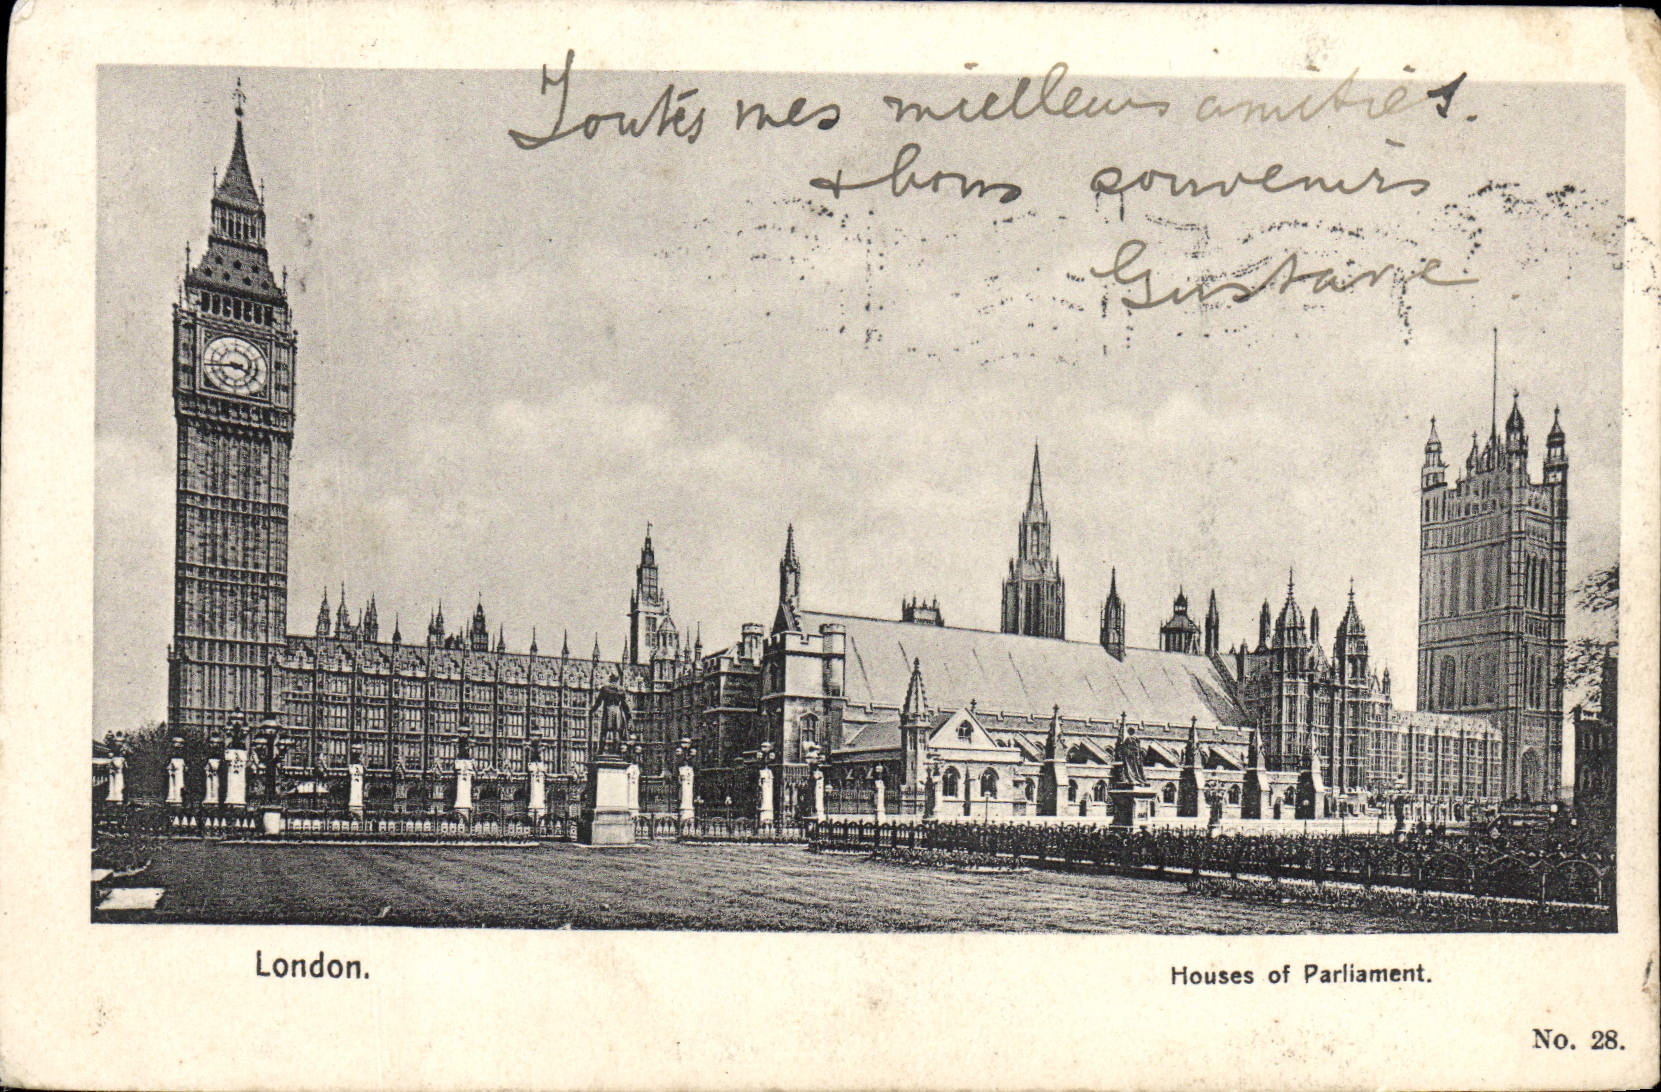 Toutes mes meilleurs amitiés.
+ bons souvenirs
Gustave
London.
Houses of Parliament.
No. 28.